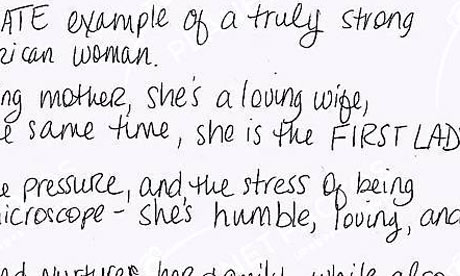 ATE example of a truly strong
rican woman.
ng mother, she's a loving wife,
e same time, she is the FIRST LAD
e pressure, and the stress of being
icroscope - she's humble, loving, and
nd nurtures her family, while also